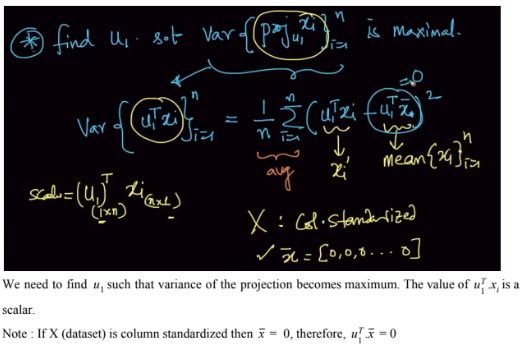 * find u₁ s.t Var{proj_u₁ xᵢ}ⁿᵢ₌₁ is maximal.
= 0
Var{u₁ᵀxᵢ}ⁿᵢ₌₁ = 1/n Σⁿᵢ₌₁ (u₁ᵀxᵢ - u₁ᵀx̄)²
avg xᵢ' mean{xᵢ}ⁿᵢ₌₁
scalar = (u₁)ᵀ(1×n) xᵢ(n×1)
X : Col. Standardized
✓ x̄ = [0,0,0 ... 0]
We need to find u₁ such that variance of the projection becomes maximum. The value of u₁ᵀxᵢ is a
scalar.
Note : If X (dataset) is column standardized then x̄ = 0, therefore, u₁ᵀx̄ = 0